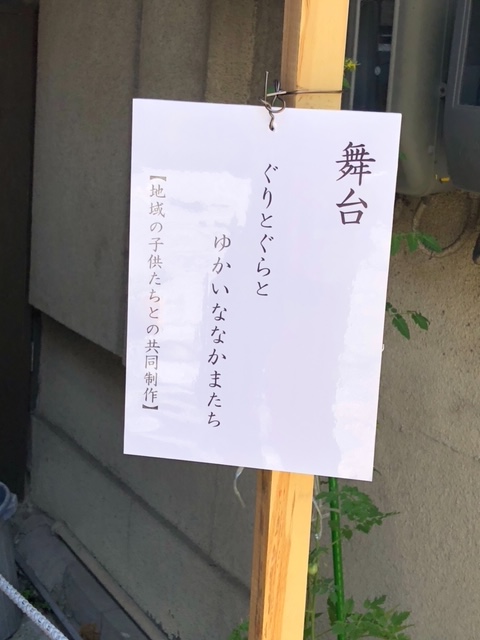 舞台
ぐりとぐらと
ゆかいななかまたち
【地域の子供たちとの共同制作】